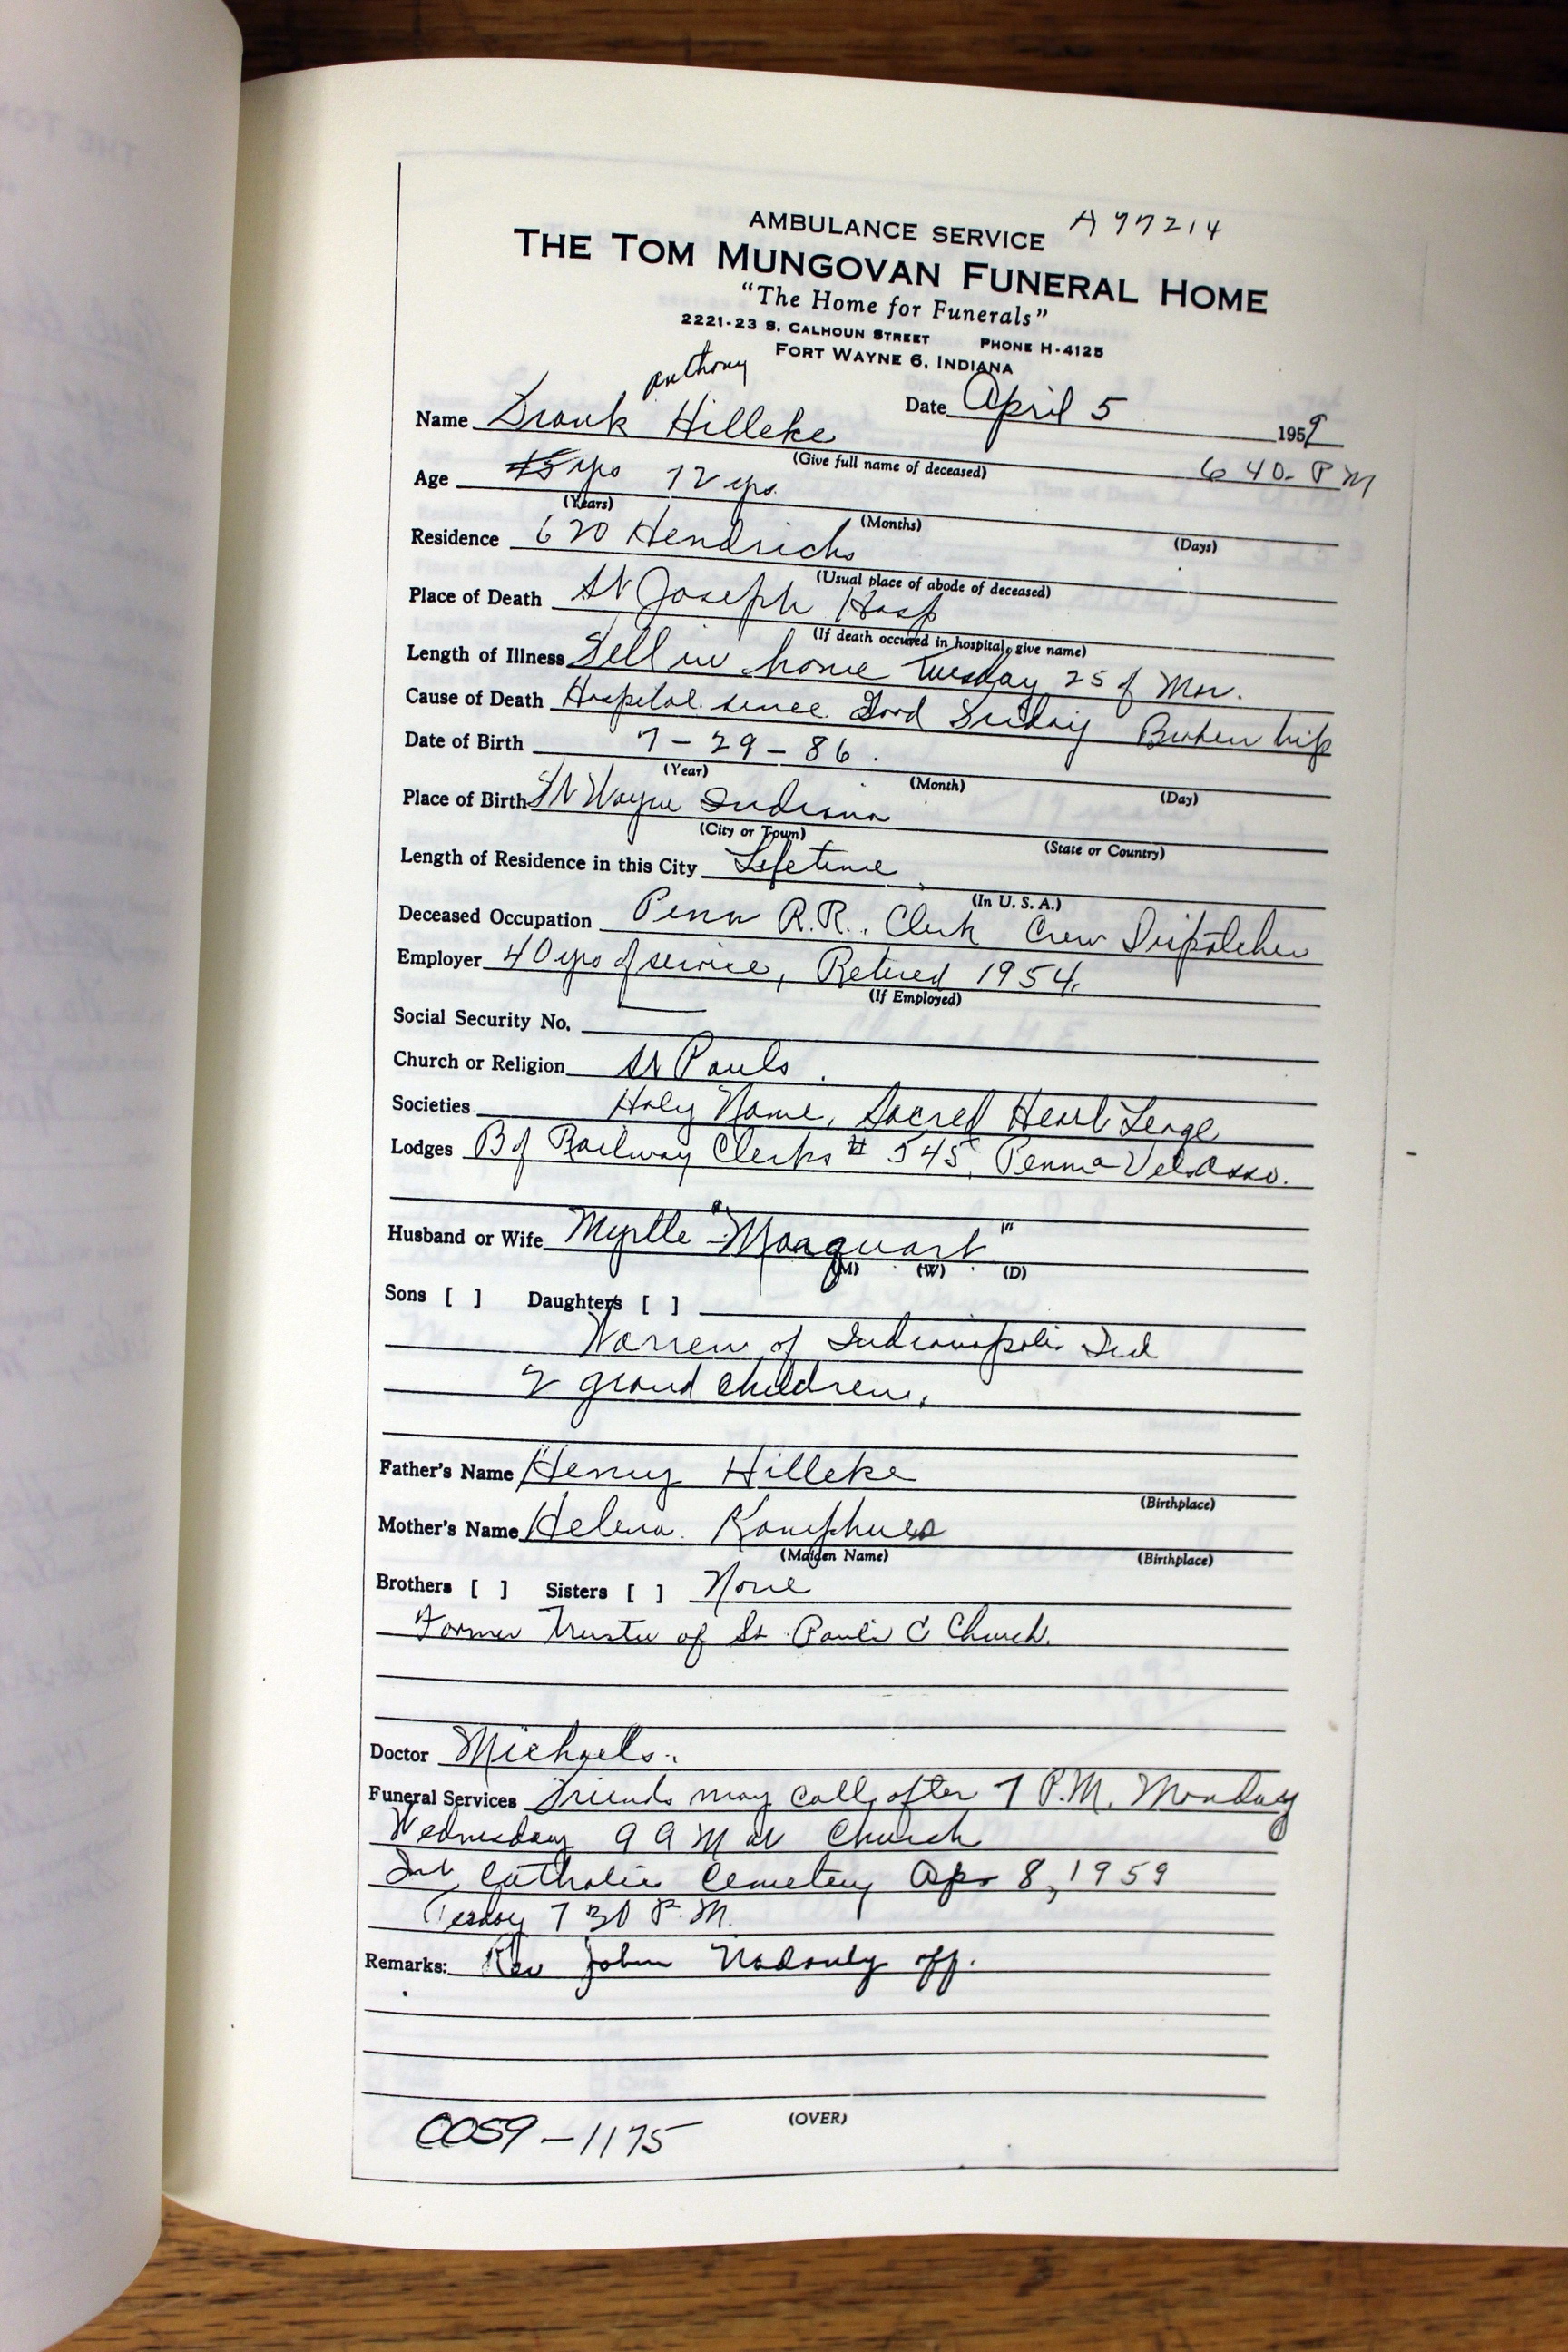 AMBULANCE SERVICE A 97214
THE TOM MUNGOVAN FUNERAL HOME
"The Home for Funerals"
2221-23 S. CALHOUN STREET PHONE H-4125
FORT WAYNE 6, INDIANA
anthony
Name Frank Hilleke Date April 5 1959
(Give full name of deceased) 6 40. P M
Age 45 yrs 72 yrs.
(Years) (Months) (Days)
Residence 620 Hendricks
(Usual place of abode of deceased)
Place of Death St Joseph Hosp
(If death occured in hospital, give name)
Length of Illness Fell in home Tuesday 25 of Mar.
Cause of Death Hospital since Good Friday Broken hip
Date of Birth 7-29-86.
(Year) (Month) (Day)
Place of Birth Ft Wayne Indiana
(City or Town) (State or Country)
Length of Residence in this City Lifetime
(In U. S. A.)
Deceased Occupation Penn R.R. Clerk Crew Dispatcher
Employer 40 yrs of service, Retired 1954.
(If Employed)
Social Security No.
Church or Religion St Pauls.
Societies Holy Name, Sacred Heart Leage
Lodges B of Railway Clerks # 545, Penna Vet. Asso.
Husband or Wife Myrtle "Marquart"
(M) (W) (D)
Sons [ ] Daughters [ ]
Warren of Indianapolis Ind
2 grand children.
Father's Name Henry Hilleke
(Birthplace)
Mother's Name Helena Kamphues
(Maiden Name) (Birthplace)
Brothers [ ] Sisters [ ] None
Former Trustee of St Pauls C Church.
Doctor Michaels.
Funeral Services Friends may call after 7 P.M. Monday
Wednesday 9 A M at Church
Int Catholic Cemetery Apr 8, 1959
Tesday 7 30 P.M.
Remarks: Rev John off.
(OVER)
0059-1175